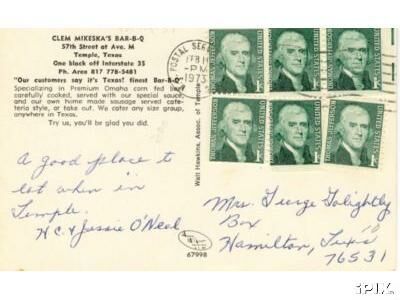 CLEM MIKESKA'S BAR-B-Q
57th Street at Ave. M
Temple, Texas
One block off Interstate 35
Ph. Area 817 778-5481
"Our customers say it's Texas' finest Bar-B-Q"
Specializing in Premium Omaha corn fed beef
carefully cooked, served with our special sauce
and our own home made sausage served cafe-
teria style, or take out. We cater any size group,
anywhere in Texas.
Try us, you'll be glad you did.
A good place to
eat when in
Temple.
H.C. & Jessie O'Neal
Walt Hawkins, Assoc. of Temple
67998
POSTAL SERV
FEB
PM
1973
THOMAS JEFFERSON
UNITED STATES
1¢
THOMAS JEFFERSON
UNITED STATES
1¢
THOMAS JEFFERSON
UNITED STATES
1¢
THOMAS JEFFERSON
UNITED STATES
1¢
THOMAS JEFFERSON
UNITED STATES
1¢
THOMAS JEFFERSON
UNITED STATES
1¢
Mrs. George Golightly
Box
Hamilton, Texas
76531
iPIX